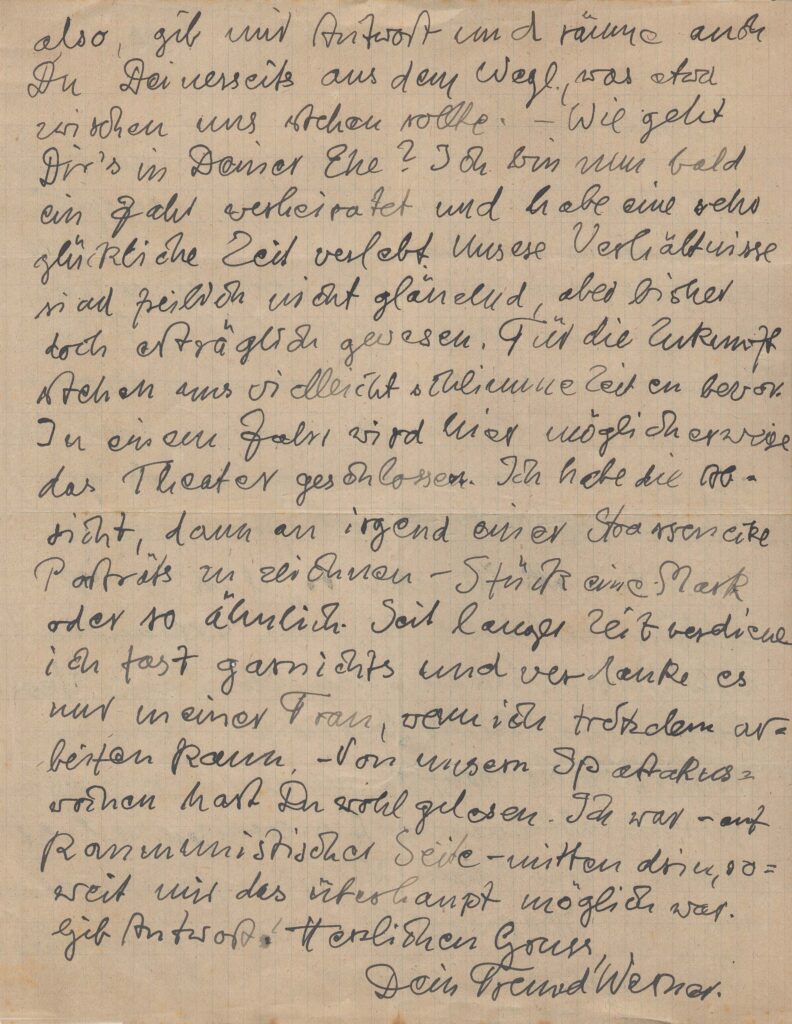 also, gib mir Antwort und räume auch
Du Deinerseits aus dem Wege, was etwa
zwischen uns stehen sollte. – Wie geht
Dir's in Deiner Ehe? Ich bin nun bald
ein Jahr verheiratet und habe eine sehr
glückliche Zeit verlebt. Unsere Verhältnisse
sind freilich nicht glänzend, aber bisher
doch erträglich gewesen. Für die Zukunft
stehen uns vielleicht schlimme Zeiten bevor.
In einem Jahr wird hier möglicherweise
das Theater geschlossen. Ich habe die Ab-
sicht, dann an irgend einer Strassenecke
Porträts zu zeichnen – Stück eine Mark
oder so ähnlich. Seit langer Zeit verdiene
ich fast garnichts und verdanke es
nur meiner Frau, wenn ich trotzdem ar=
beiten kann. – Von unsern Spartakus=
wochen hast Du wohl gelesen. Ich war – auf
kommunistischer Seite – mitten drin, so=
weit mir das überhaupt möglich war.
Gib Antwort! Herzlichen Gruss,
Dein Freund Werner.